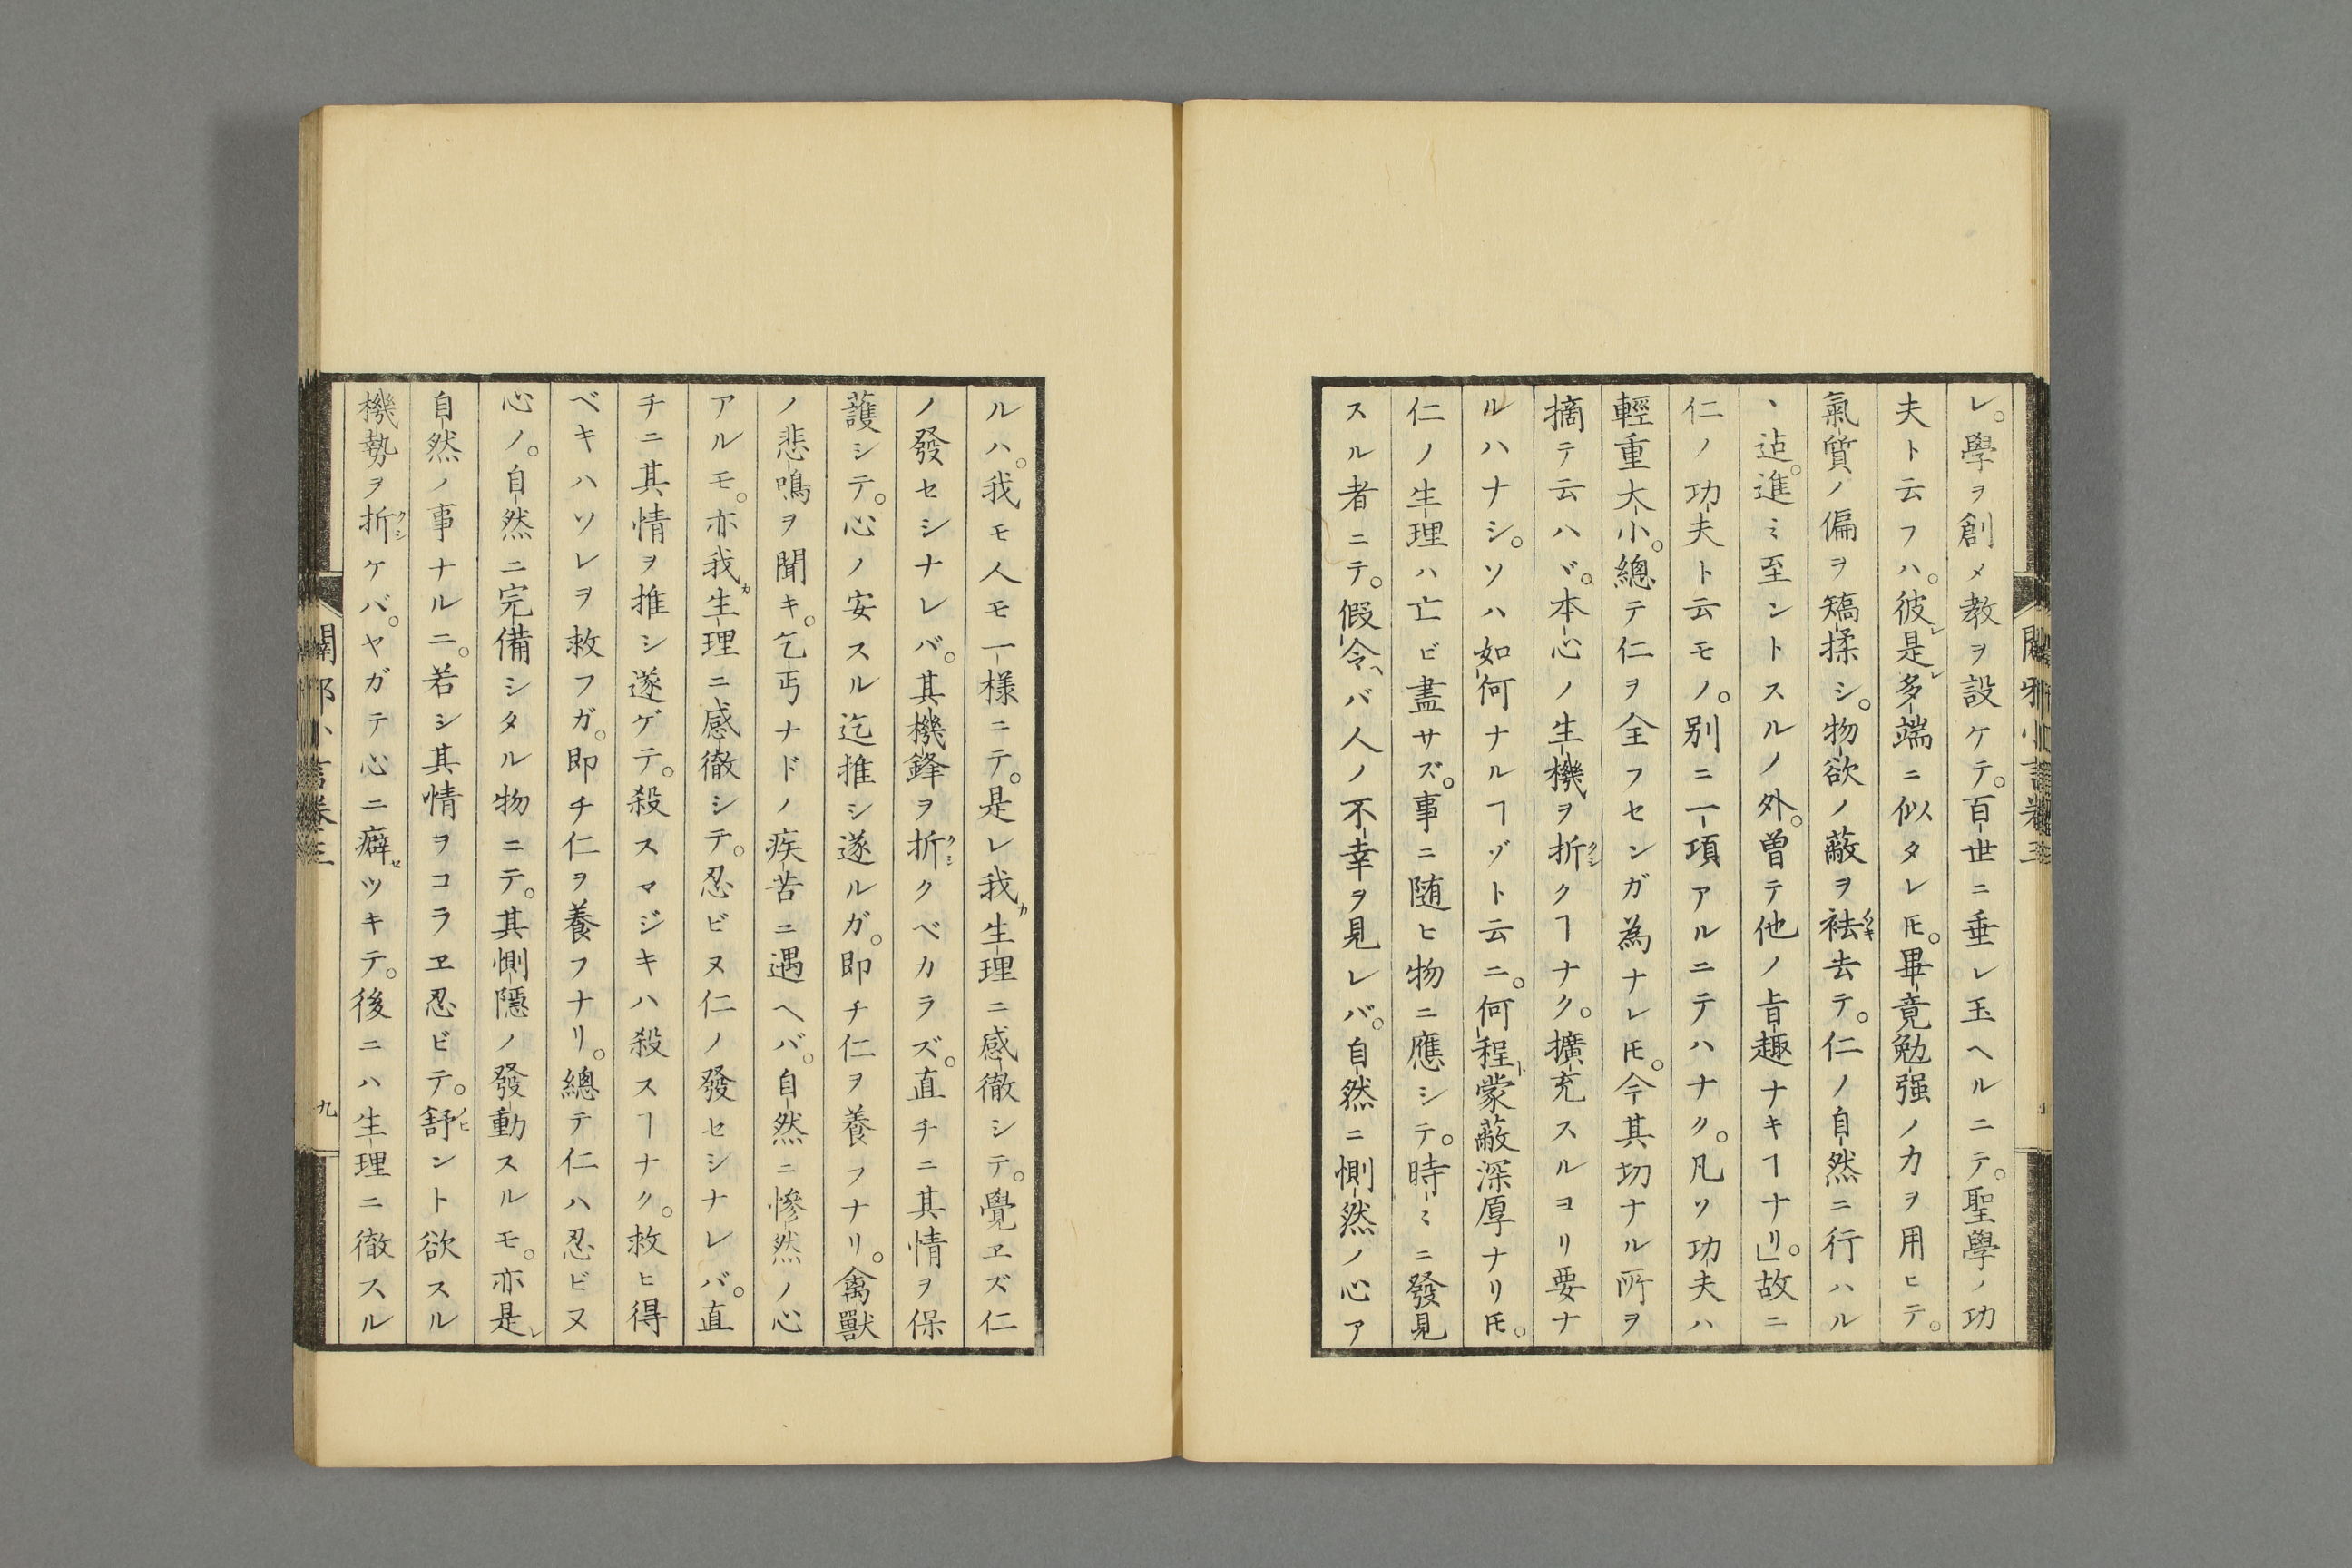 レ。學ヲ創メ教ヲ設ケテ。百世ニ垂レ玉ヘルニテ。聖學ノ功
夫ト云フハ。彼レ是レ多端ニ似タレ𪜈。畢竟勉强ノ力ヲ用ヒテ。
氣質ノ偏ヲ矯揉シ。物欲ノ蔽ヲ袪去テ。仁ノ自然ニ行ハル
、迠。進ミ至ントスルノ外。曽テ他ノ㫖趣ナキヿナリ」。故ニ
仁ノ功夫ト云モノ。別ニ一項アルニテハナク。凡ソ功夫ハ
輕重大小。總テ仁ヲ全フセンガ為ナレ𪜈。今其切ナル所ヲ
摘テ云ハヾ。本心ノ生機ヲ折クヿナク。擴充スルヨリ要ナ
ルハナシ。ソハ如何ナルヿゾト云ニ。何程蒙蔽深厚ナリ𪜈。
仁ノ生理ハ亡ビ盡サズ。事ニ随ヒ物ニ應シテ。時ミニ發見
スル者ニテ。假令ヘバ人ノ不幸ヲ見レバ。自然ニ惻然ノ心ア
ルハ。我モ人モ一様ニテ。是レ我カ生理ニ感徹シテ。覺ヱズ仁
ノ發セシナレバ。其機鋒ヲ折クベカラズ。直チニ其情ヲ保
護シテ。心ノ安スル迄推シ遂ルガ。即チ仁ヲ養フナリ。禽獸
ノ悲鳴ヲ聞キ。乞丐ナドノ疾苦ニ遇ヘバ。自然ニ慘然ノ心
アルモ。亦我カ生理ニ感徹シテ。忍ビヌ仁ノ發セシナレバ。直
チニ其情ヲ推シ遂ゲテ。殺スマジキハ殺スヿナク。救ヒ得
ベキハソレヲ救フガ。即チ仁ヲ養フナリ。總テ仁ハ忍ビヌ
心ノ。自然ニ完備シタル物ニテ。其惻隱ノ發動スルモ。亦是レ
自然ノ事ナルニ。若シ其情ヲコラヱ忍ビテ。舒ント欲スル
機勢ヲ折ケバ。ヤガテ心ニ癖ツキテ。後ニハ生理ニ徹スル
九